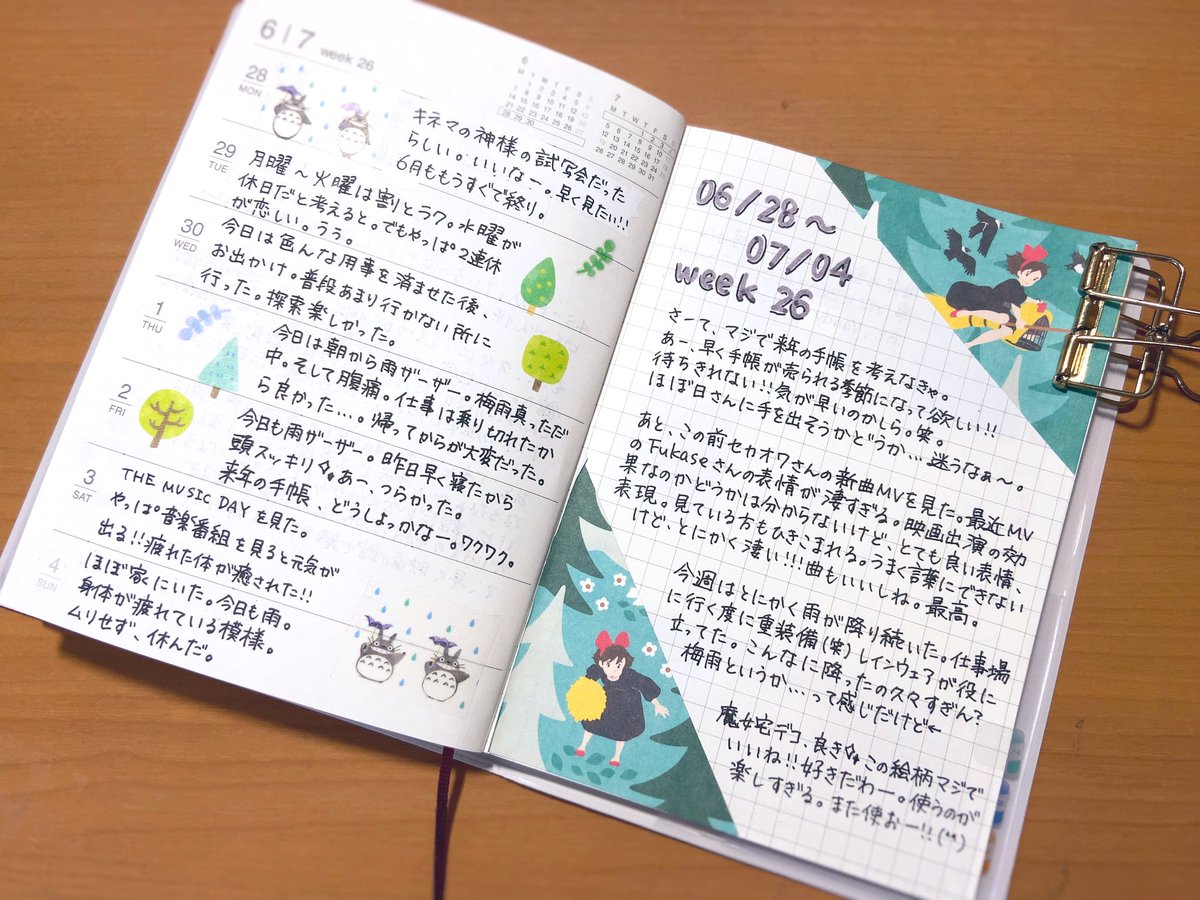 6|7 week 26
6
M T W T F S S
1 2 3 4 5 6
7 8 9 10 11 12 13
14 15 16 17 18 19 20
21 22 23 24 25 26 27
28 29 30
7
M T W T F S
1 2 3
5 6 7 8 9 10
12 13 14 15 16 17
19 20 21 22 23 24
26 27 28 29 30 31
28
MON
キネマの神様の試写会だった
らしい。いいなー。早く見たい!!
6月ももうすぐで終り。
29
TUE
月曜〜火曜は割とラク。水曜が
休日だと考えると。でもやっぱ2連休
が恋しい。うぅ。
30
WED
今日は色んな用事を済ませた後、
お出かけ。普段あまり行かない所に
行った。探索楽しかった。
1
THU
今日は朝から雨ザーザー。梅雨真っただ
中。そして腹痛。仕事は乗り切れたか
ら良かった…。帰ってからが大変だった。
2
FRI
今日も雨ザーザー。昨日早く寝たから
頭スッキリ。あー、つらかった。
来年の手帳、どうしよっかなー。ワクワク。
3
SAT
THE MUSIC DAY を見た。
やっぱ音楽番組を見ると元気が
出る!!疲れた体が癒された!!
4
SUN
ほぼ家にいた。今日も雨。
身体が疲れている模様。
ムリせず、休んだ。
06/28〜
07/04
week 26
さーて、マジで来年の手帳を考えなきゃ。
あー、早く手帳が売られる季節になって欲しい!!
待ちきれない!!気が早いのかしら。笑。
ほぼ日さんに手を出そうかどうか…迷うなぁ〜。
あと、この前セカオワさんの新曲MVを見た。最近MV
のFukaseさんの表情が凄すぎる。映画出演の効
果なのかどうかは分からないけど、とても良い表情、
表現。見ている方もひきこまれる。うまく言葉にできない
けど、とにかく凄い!!!曲もいいしね。最高。
今週はとにかく雨が降り続いた。仕事場
に行く度に重装備(笑)レインウェアが役に
立ってた。こんなに降ったの久々すぎん?
梅雨というか…って感じだけど←
魔女宅デコ、良き。この絵柄マジで
いいね!!好きだわー。使うのが
楽しすぎる。また使おー!!(^^)